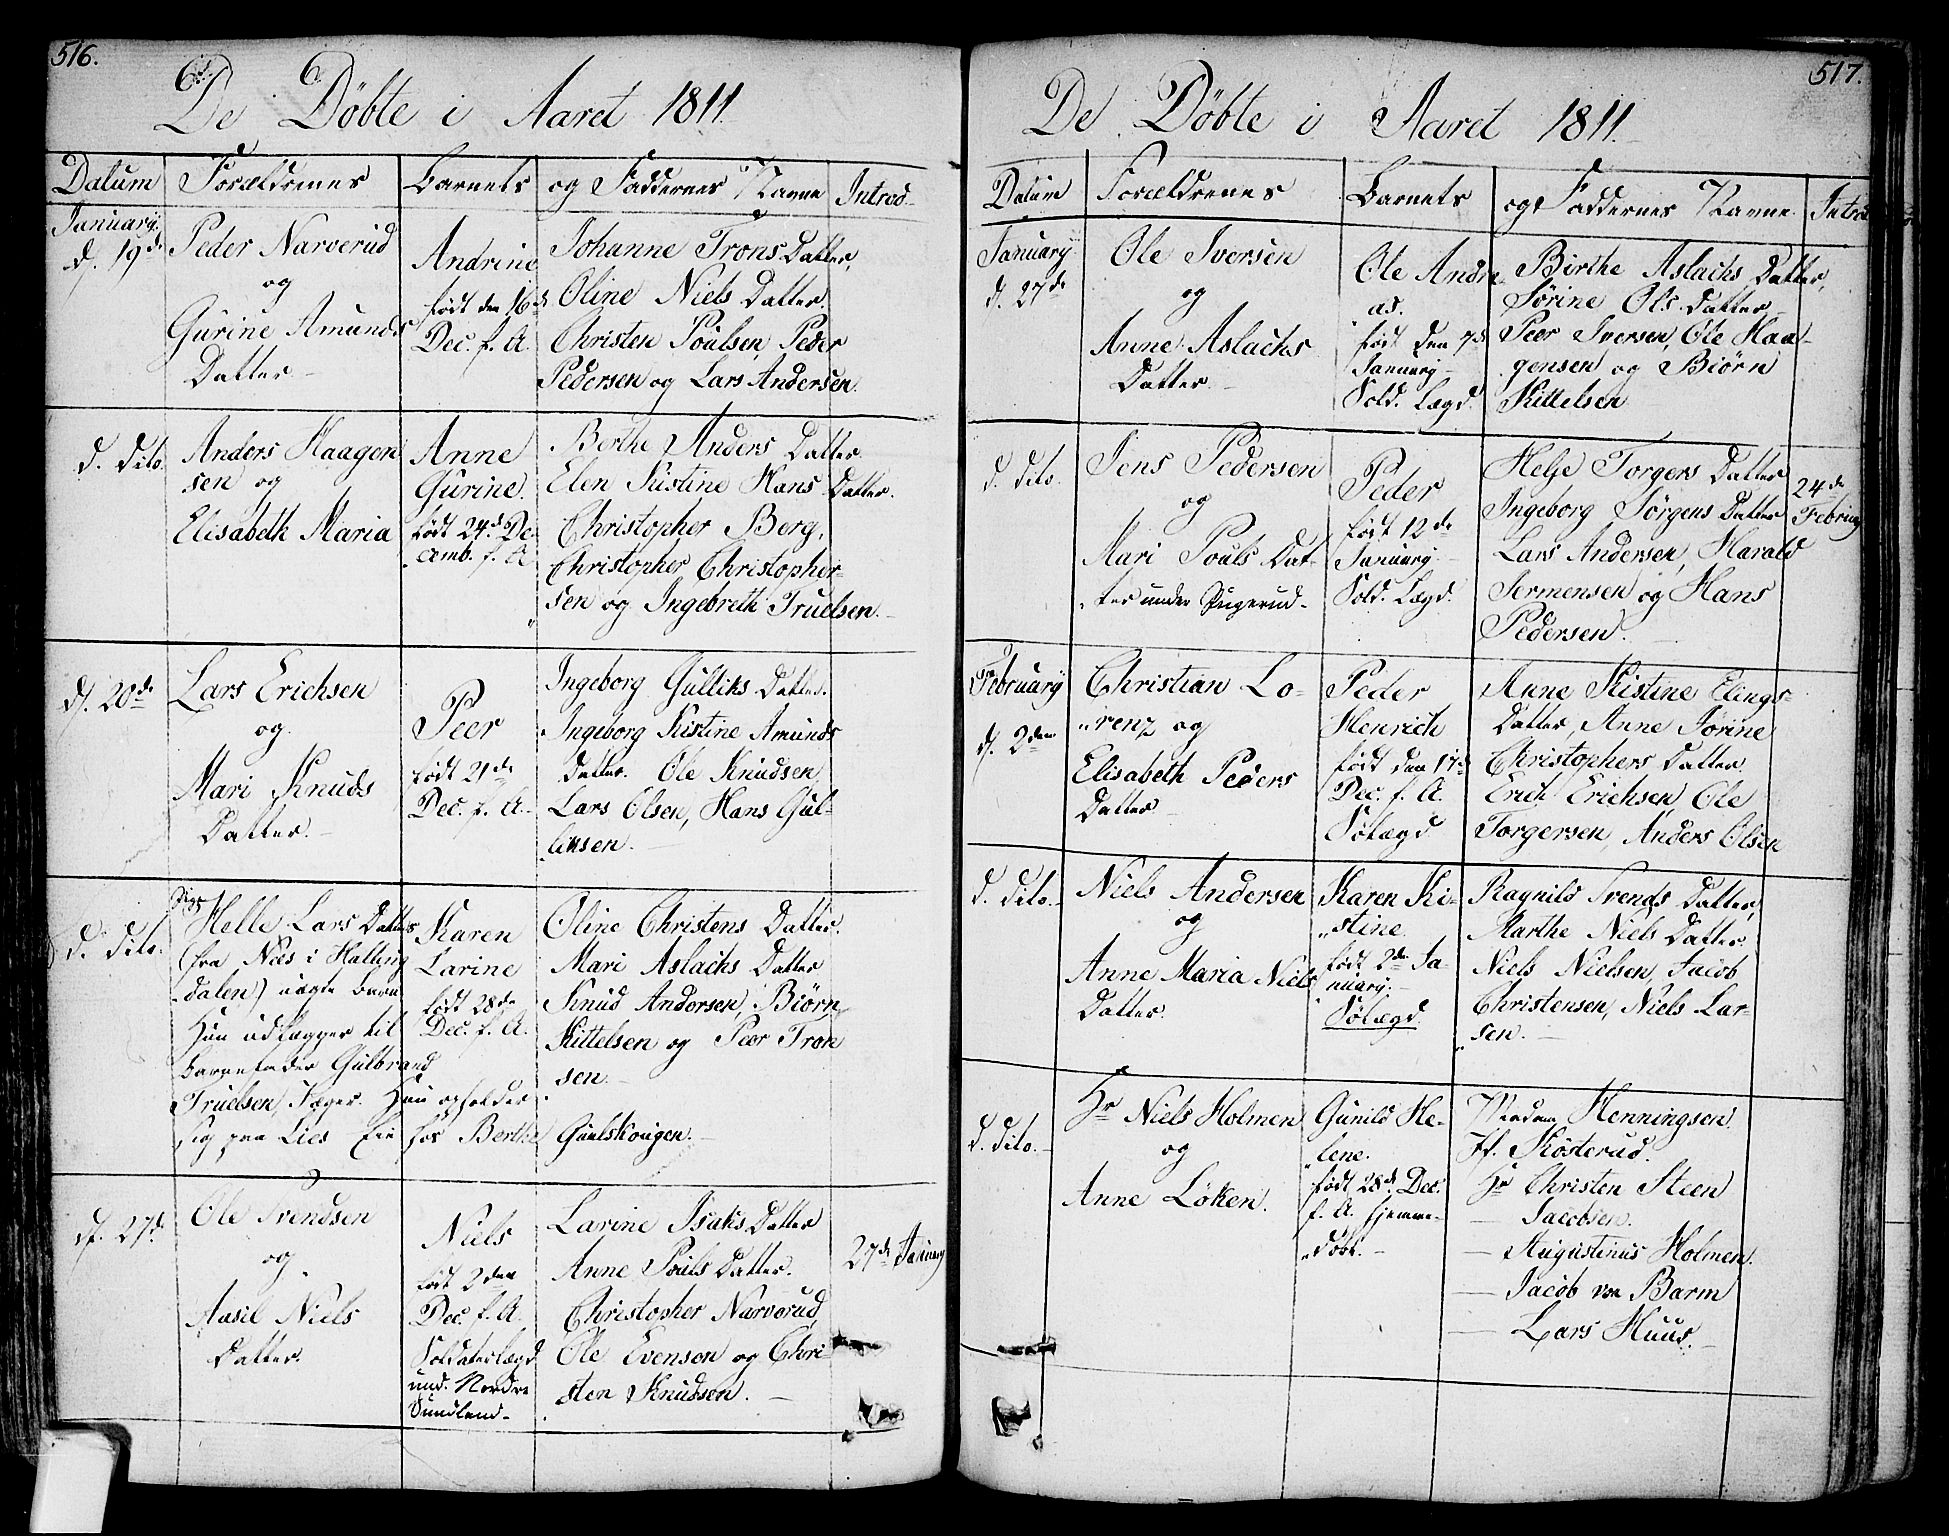 516.
De Döbte i Aaret 1811
Datum Forældrenes Barnets og Faddernes Navne Introd.
January
d. 19de
Peder Narverud
og
Gurine Amunds
Datter
Andrine
født den 16d
Dec. f. A.
Johanne Trons Datter,
Oline Niels Datter
Christen Poulsen, Peder
Pedersen og Lars Andersen
d. dito.
Anders Haagen
sen og
Elisabeth Maria
Anne
Gurine.
født 24d De
cemb. f. A.
Berthe Anders Datter
Elen Kistine Hans Datter.
Christopher Berg,
Christopher Christopher-
sen og Ingebreth Truelsen.
d. 20de
Lars Erichsen
og
Mari Knuds
Datter.
Peer
født 21de
Dec. f. A.
Ingeborg Gulliks Datter.
Ingeborg Kistine Amunds
Datter. Ole Knudsen,
Lars Olsen, Hans Gul-
liksen.
d. dito.
Pige
Helle Lars Datter
(fra Næs i Halling
dalen) uægte barn
Hun udlægger til
barnefader Gulbrand
Truelsen, Jæger. Hun opholder
sig paa Lies Eie hos Berthe
Guulskougen.
Karen
Larine
født 28de
Dec. f. A.
Oline Christens Datter.
Mari Aslachs Datter
Knud Andersen, Biörn
Kittelsen og Peer Tron
sen.
d. 27d.
Ole Svendsen
og
Aasil Niels
Datter.
Niels
født 2den
Dec. f. A.
Soldaterlægd
und. Nordre
Sundland.
Larine Isaks Datter
Anne Pouls Datter.
Christopher Narverud,
Ole Evensen og Chri-
sten Knudsen.
27de January
517.
De Döbte i Aaret 1811.
Datum Forældrenes Barnets og Faddernes Navne Introd
January
d. 27de
Ole Iversen
og
Anne Aslachs
Datter.
Ole Andre-
as.
født den 7d
January
Sold. Lægd.
Birthe Aslachs Datter,
Sörine Ols Datter
Peer Iversen, Ole Haa-
gensen og Biörn
Kittelsen
d. dito.
Jens Pedersen
og
Mari Pouls Dat-
ter under Pugerud.
Peder
født 12de
January
Sold. Lægd.
Helje Torgers Datter
Ingeborg Jörgens Datter
Lars Andersen, Harald
Jermensen og Hans
Pedersen.
24de
February
February
d. 2den
Christian Lo-
renz og
Elisabeth Peders
Datter
Peder
Henrich
født den 17d
Dec. f. A.
Sölægd
Anne Kistine Elings-
Datter, Anne Jorine
Christophers Datter
Erich Erichsen, Ole
Torgersen, Anders Olsen
d. dito.
Niels Andersen
og
Anne Maria Niels
Datter.
Karen Ki-
stine.
født 2de Ja-
nuary.
Sölægd.
Ragnild Svends Datter,
Marthe Niels Datter.
Niels Nielsen, Jacob
Christensen, Niels Lar-
sen.
d. dito.
Hr Niels Holmen
og
Anne Löken.
Gunild He-
lene.
født 28d Dec.
f. A. hjemme-
döbt.
Madam Henningsen.
Jf. Kösterud.
Hr Christen Steen
— Jacobsen.
— Augustinus Holmen.
— Jacob von Barm
— Lars Huus.